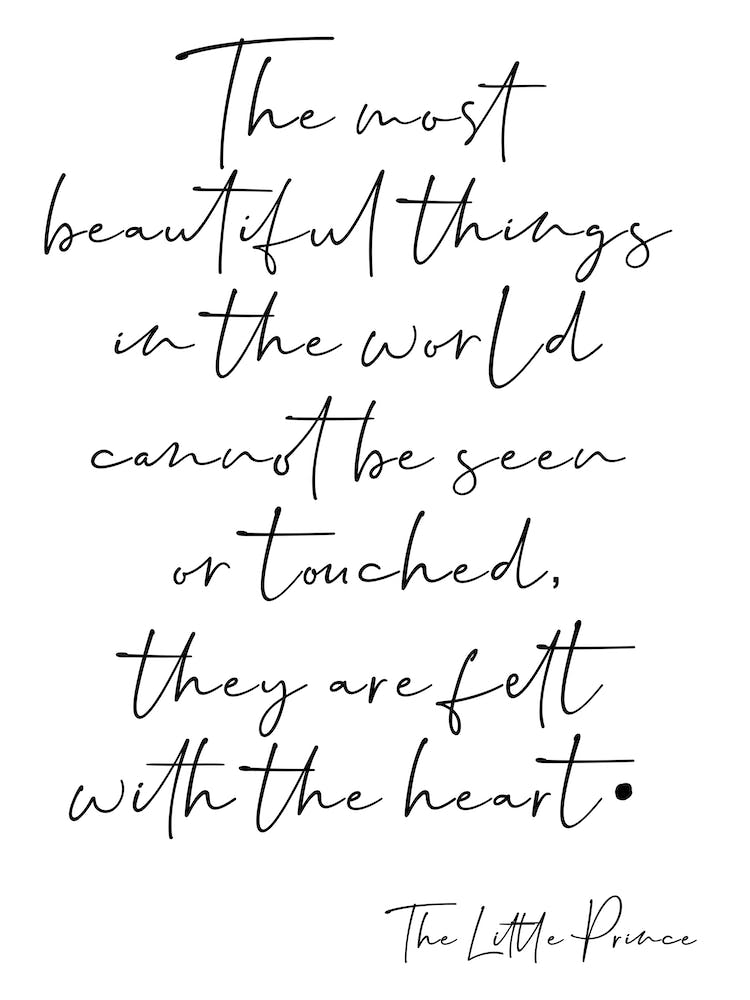 The most
beautiful things
in the world
cannot be seen
or touched,
they are felt
with the heart.
The Little Prince